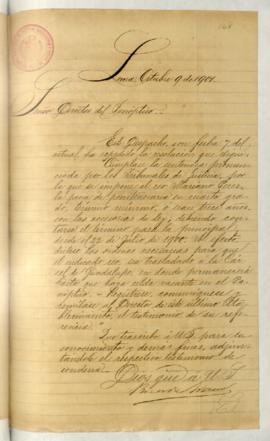 Lima, Octubre 9 de 1901.
Señor Director del Panóptico.
Este Despacho, con fecha 7 del
actual, ha expedido la resolución que sigue:
"Cúmplase la sentencia pronun-
ciada por los Tribunales de Justicia, por
la que se impone al reo Mariano
la pena de penitenciaría en cuarto gra-
do, término mínimo, ó sean trece años
con las accesorias de ley; debiendo con-
tarse el término para la principal
desde el 22 de julio de 1900. Al efecto
dense las órdenes necesarias para que
el indicado reo, sea trasladado a la Cár-
cel de Guadalupe, en donde permanecerá
hasta que haya celda vacante en el Pa-
nóptico. Regístrese, comuníquese y
remítase al Director de este último Esta-
blecimiento el testimonio de su refe-
rencia."
Que trascribo á US. para su
conocimiento y demás fines, adjun-
tándole el respectivo testimonio de
condena.
Dios gue á US.